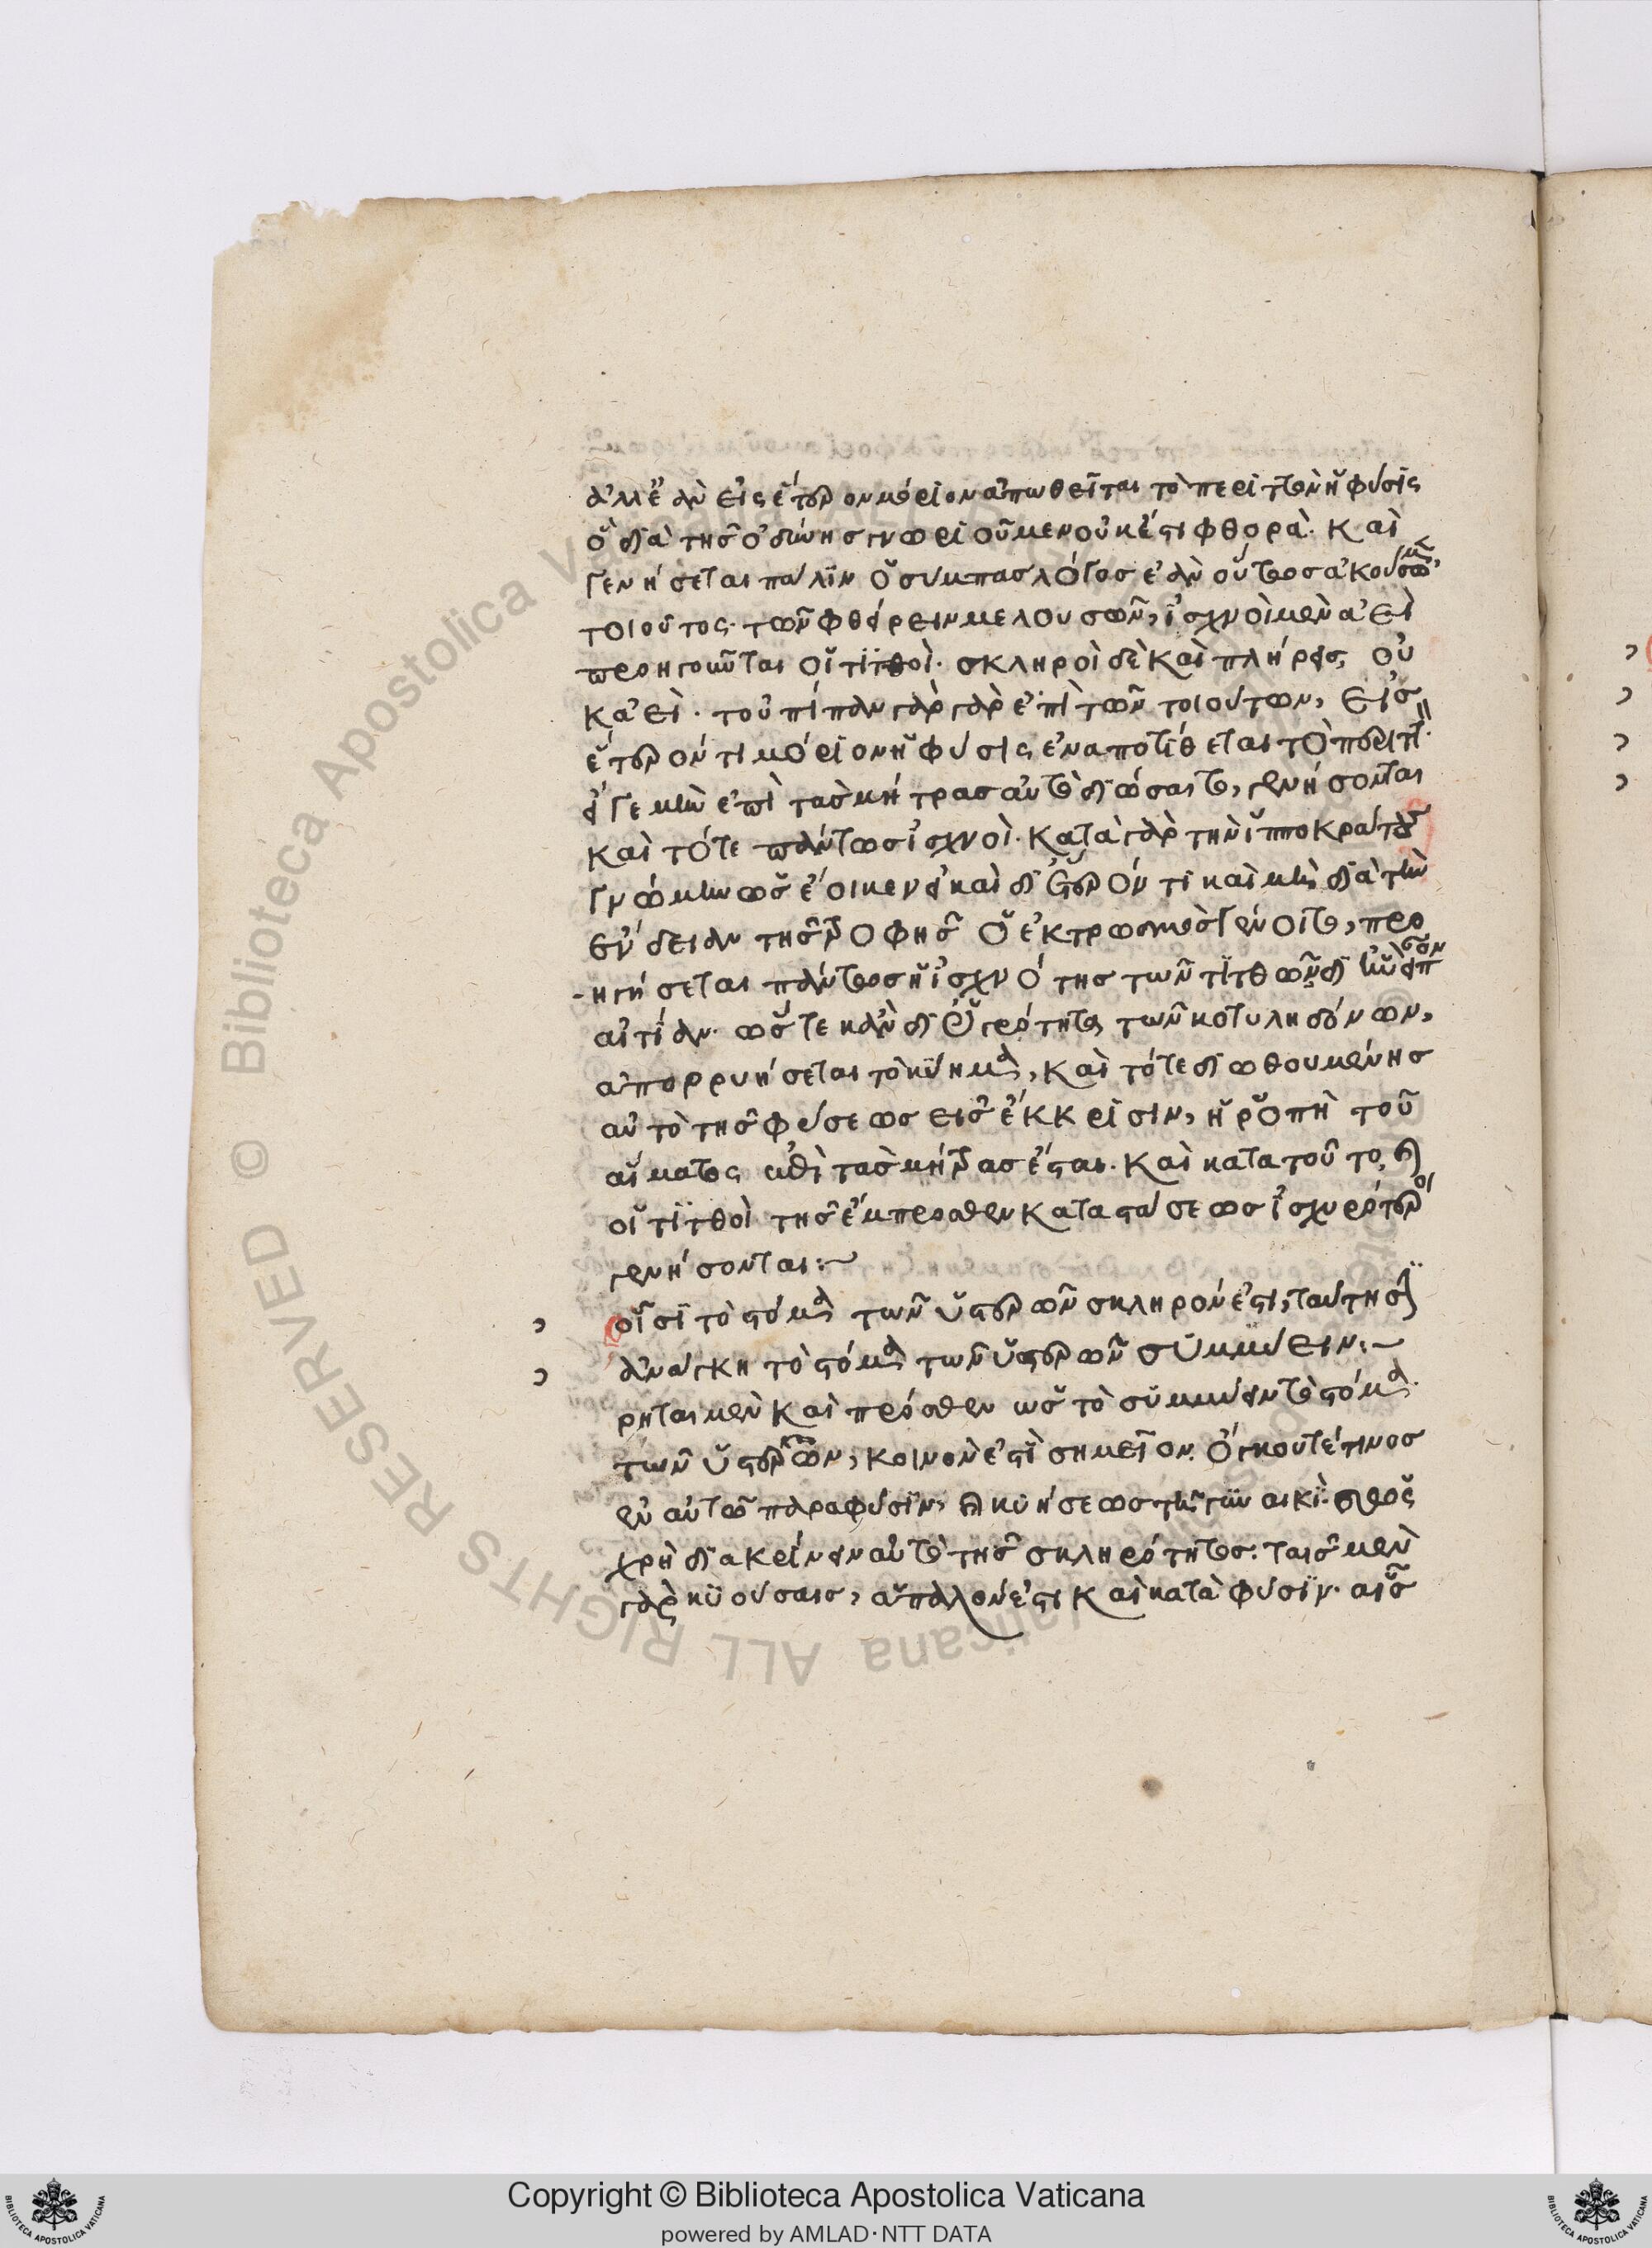 ἀλλ' ἐὰν εἰς ἕτερον μόριον ἀπωθεῖται τὸ περιττὸν ἡ φύσις
ὃ διὰ τῆς ὀδύνης γνωριοῦμεν οὐκ ἔστι φθορὰ. καὶ
γενήσεται πάλιν ὁ σύμπας λόγος ἐὰν οὕτως ἀκούσωμεν
τοιοῦτος. τῶν φθείρειν μελουσῶν, ἰσχνοὶ μὲν ἀεὶ
προηγοῦνται οἱ τιτθοὶ. σκληροὶ δὲ καὶ πλήρεις, οὐ
κ ἀεὶ. τοὐπίπαν γὰρ γὰρ ἐπὶ τῶν τοιούτων, εἰς
ἕτερόν τι μόριον ἡ φύσις ἐναποτίθεται τὸ περιττ.
εἴ γε μὴν ἐπὶ τὰς μήτρας αὐτὸ διώσαιτο, γενήσονται
καὶ τότε πάντως ἰσχνοὶ. κατὰ γὰρ τὴν ἱπποκράτους
γνώμην ὡς ἔοικεν εἰ καὶ δι' ἕτερόν τι καὶ μὴ διὰ τὴν
ἔνδειαν τῆς τροφῆς ὁ ἐκτρωσμὸς γένοιτο, προ
ηγήσεται πάντως ἡ ἰσχνότης τῶν τιτθῶν δι' ἣν εἶπον
αἰτίαν. ὥστε κἂν δι' ὑγρότητα τῶν κοτυληδόνων,
ἀπορρυήσεται τὸ κύημα, καὶ τότε διωθουμένης
αὐτὸ τῆς φύσεως εἰς ἔκκρισιν, ἡ ῥοπὴ τοῦ
αἵματος ἐπὶ τὰς μήτρας ἔσται. καὶ κατὰ τοῦτο,
οἱ τιτθοὶ τῆς ἔμπροσθεν καταστάσεως ἰσχνρότεροι
γενήσονται:~
οἷσι τὸ στόμα τῶν ὑστερῶν σκληρόν ἐστι, ταύτησιν
ἀνάγκη τὸ στόμα τῶν ὑστερῶν συμμύειν:~
ρηται μὲν καὶ πρόσθεν ὡς τὸ συμμύειν τὸ στόμα
τῶν ὑστερῶν, κοινὸν ἐστὶ σημεῖον. ὄγκου τέ τινος
ἐν αὐτῷ παρὰ φύσιν, καὶ κυήσεως τῆς γυναικὶ.
χρὴ διακρίνειν αὐτὸ τῆς σκληρότητος. ταῖς μὲν
γὰρ κυούσαις, ἁπαλόν ἐστι καὶ κατὰ φύσιν. αἷς